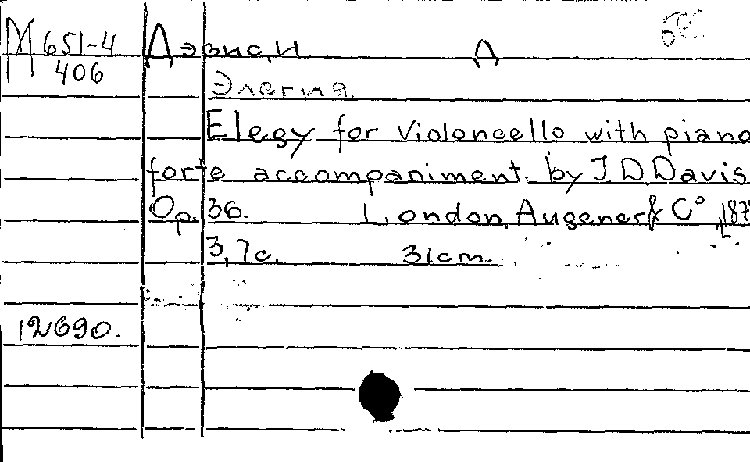 М 651-4 Дэвис, И. Д
406
Элегия.
Elegy for violoncello with piano
forte accompaniment by J. D. Davis
Op. 36. London, Augener & Cº,
3,7 с. 31cm.
12690.